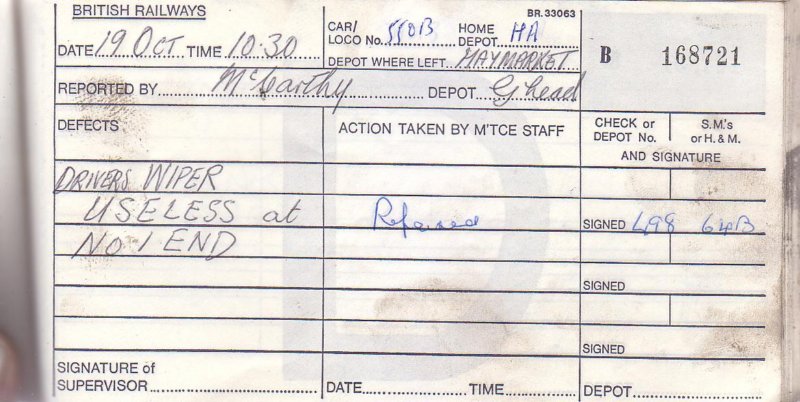 BRITISH RAILWAYS
BR.33063
DATE 19 Oct TIME 10.30
CAR/ LOCO No. 5503 HOME DEPOT HA
DEPOT WHERE LEFT HAYMARKET
B 168721
REPORTED BY McCarthy DEPOT G'head
DEFECTS
ACTION TAKEN BY M'TCE STAFF
CHECK or DEPOT No.
S.M.'s or H. & M.
AND SIGNATURE
DRIVERS WIPER
USELESS at
No 1 END
SIGNED 498 64B
SIGNED
SIGNED
SIGNATURE of
SUPERVISOR
DATE TIME DEPOT